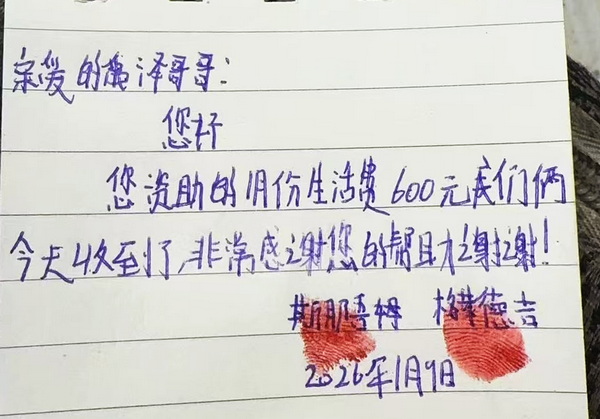 亲爱的萬泽哥哥:
您好
您资助的1月份生活费600元我们俩
今天收到了,非常感谢您的帮助谢谢!
斯那吾姆 格茸德吉
2026年1月9日